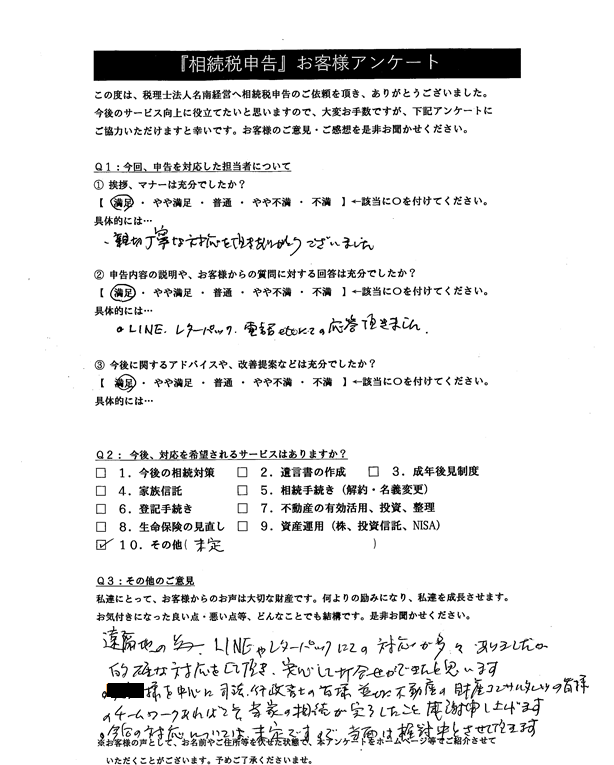 『相続税申告』お客様アンケート
この度は、税理士法人名南経営へ相続税申告のご依頼を頂き、ありがとうございました。
今後のサービス向上に役立てたいと思いますので、大変お手数ですが、下記アンケートに
ご協力いただけますと幸いです。お客様のご意見・ご感想を是非お聞かせください。
Q1:今回、申告を対応した担当者について
① 挨拶、マナーは充分でしたか?
【 満足 ・ やや満足 ・ 普通 ・ やや不満 ・ 不満 】←該当に○を付けてください。
具体的には…
・親切丁寧な対応を頂きありがとうございました
② 申告内容の説明や、お客様からの質問に対する回答は充分でしたか?
【 満足 ・ やや満足 ・ 普通 ・ やや不満 ・ 不満 】←該当に○を付けてください。
具体的には…
。LINE、レターパック、電話etcにての応答頂きました。
③ 今後に関するアドバイスや、改善提案などは充分でしたか?
【 満足 ・ やや満足 ・ 普通 ・ やや不満 ・ 不満 】←該当に○を付けてください。
具体的には…
Q2: 今後、対応を希望されるサービスはありますか?
□ 1.今後の相続対策 □ 2.遺言書の作成 □ 3.成年後見制度
□ 4.家族信託 □ 5.相続手続き(解約・名義変更)
□ 6.登記手続き □ 7.不動産の有効活用、投資、整理
□ 8.生命保険の見直し □ 9.資産運用(株、投資信託、NISA)
☑ 10.その他(未定 )
Q3:その他のご意見
私達にとって、お客様からのお声は大切な財産です。何よりの励みになり、私達を成長させます。
お気付きになった良い点・悪い点等、どんなことでも結構です。是非お聞かせください。
遠隔地の為、LINEやレターパックにての対応が多々ありましたが
的確な対応をして頂き、安心して打合せができたと思います
。様を中心に司法、行政書士の皆様並びに不動産の財産コンサルタントの皆様
のチームワークあればこそ当家の相続が完了したこと感謝申し上げます
。今後の対応については、未定ですが、当面は検討中とさせて頂きます
※お客様の声として、お名前やご住所等を伏せた状態で、本アンケートをホームページ等でご紹介させて
いただくことがございます。予めご了承くださいませ。